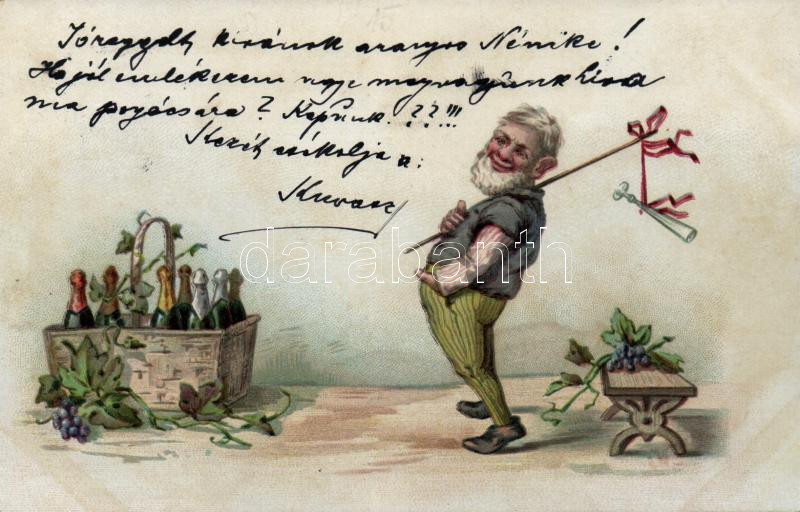 Jóreggelt kivánok aranyos Nénike!
Ha jól emlékezem ugye meg vagyunk híva
ma pogácsára? Kapunk ???!!!
Kezét csókolja a:
Kuvasz
darabanth